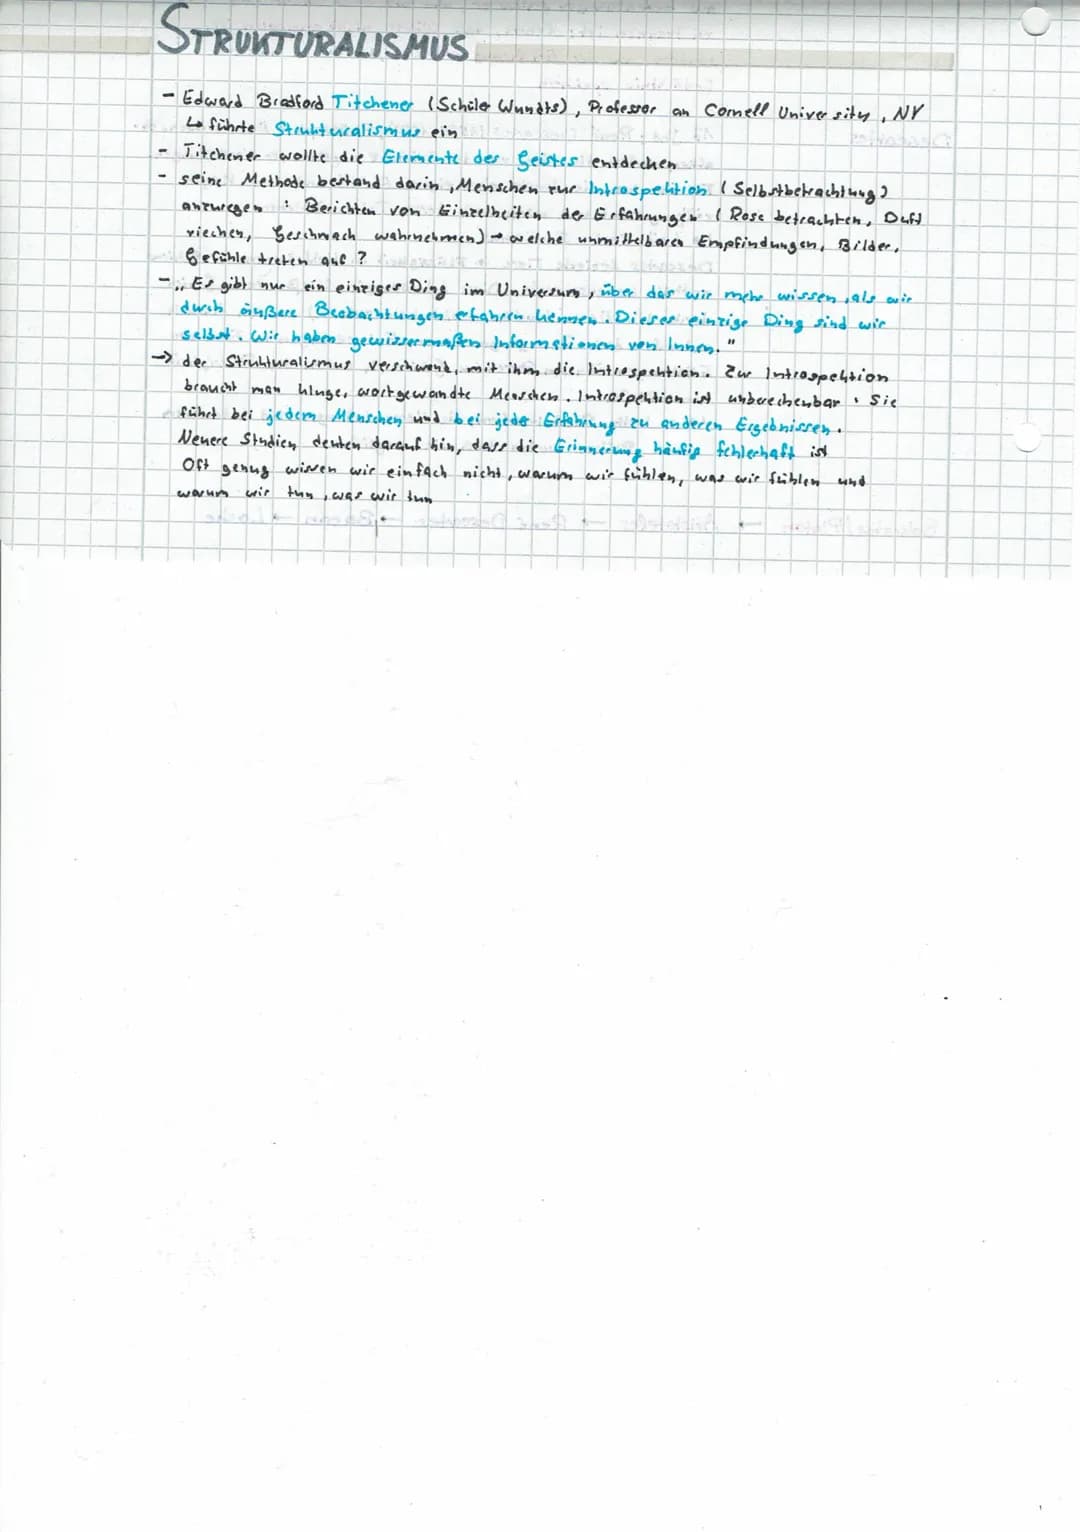 STRUKTURALISMUS
- Edward Bradford Titchener (Schüler Wundts), Professor an Cornell University, NY
↳ führte Strukturalismus ein
- Titchener wollte die Elemente des Geistes entdecken
- seine Methode bestand darin, Menschen zur Introspektion (Selbstbetrachtung)
anzuregen : Berichten von Einzelheiten der Erfahrungen (Rose betrachten, Duft
riechen, Geschmack wahrnehmen) → welche unmittelbaren Empfindungen, Bilder,
Gefühle treten auf ?
- „Es gibt nur ein einziges Ding im Universum, über das wir mehr wissen, als wir
durch äußere Beobachtungen erfahren können. Dieses einzige Ding sind wir
selbst. Wir haben gewissermaßen Informationen von Innen."
→ der Strukturalismus verschwand, mit ihm die Introspektion. Zur Introspektion
braucht man kluge, wortgewandte Menschen. Introspektion ist unberechenbar. Sie
führt bei jedem Menschen und bei jeder Erfahrung zu anderen Ergebnissen.
Neuere Studien deuten darauf hin, dass die Erinnerung häufig fehlerhaft ist
Oft genug wissen wir einfach nicht, warum wir fühlen, was wir fühlen und
warum wir tun, was wir tun